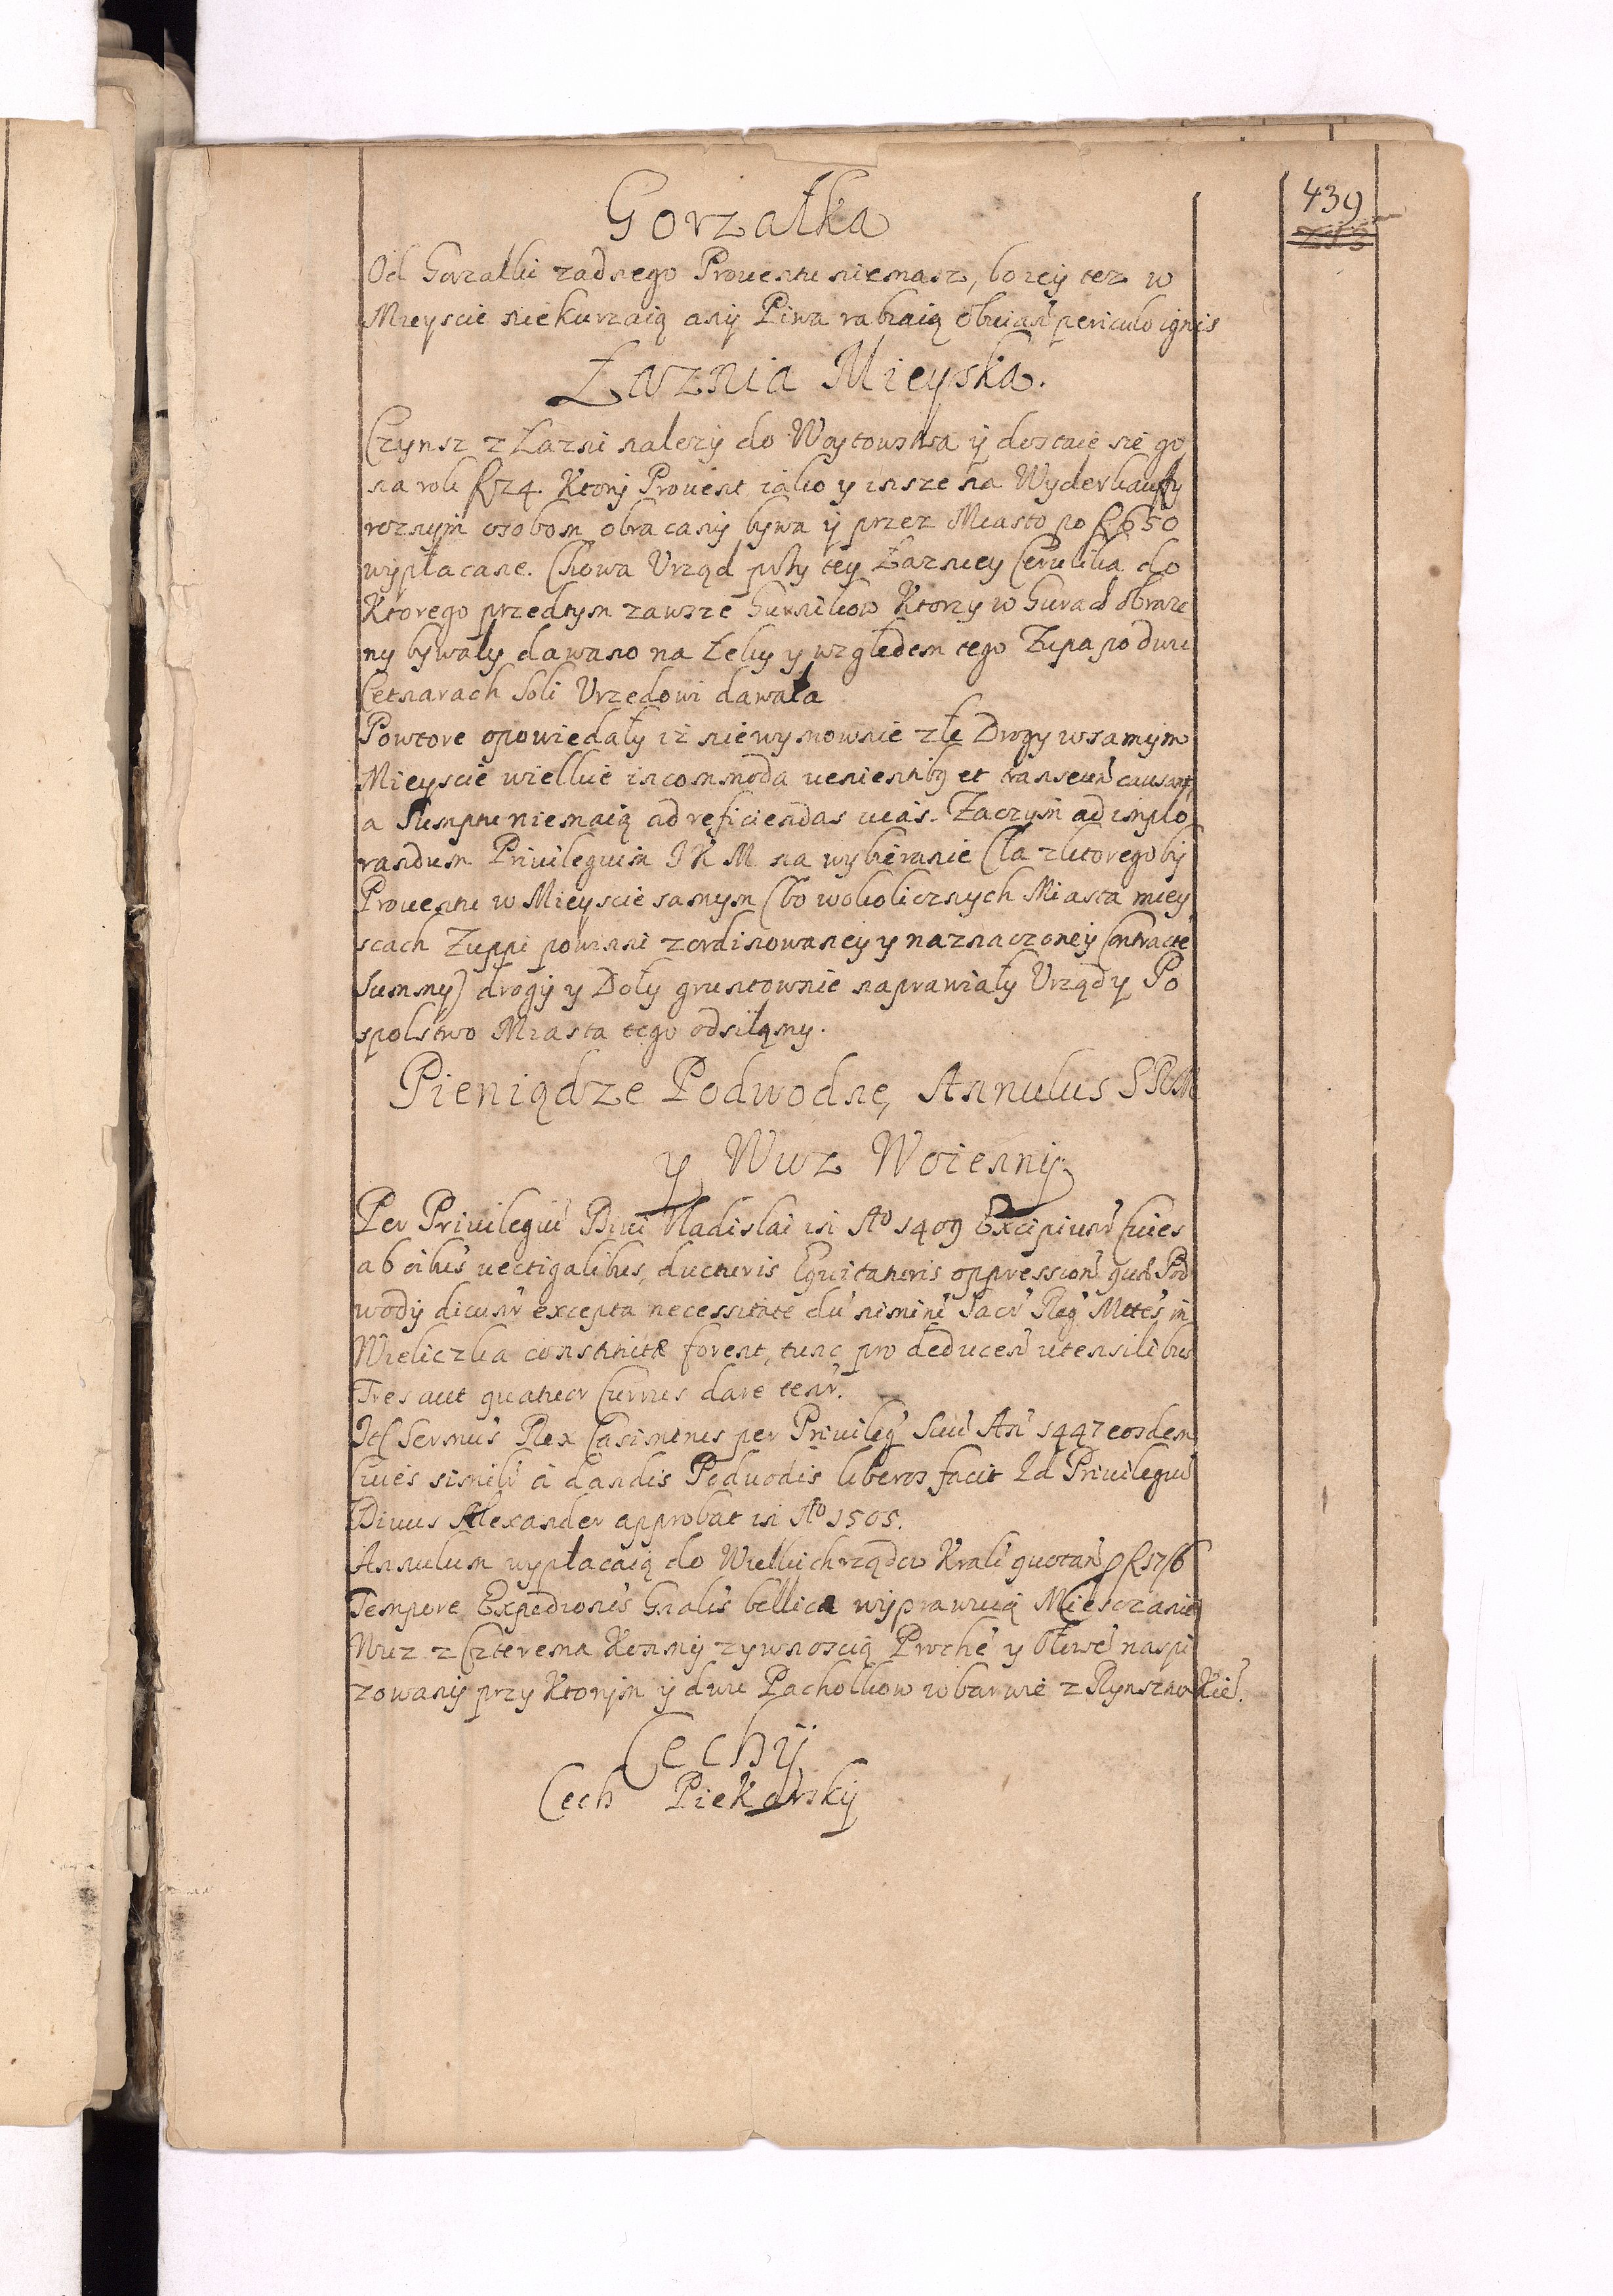 439
Gorzałka
Od Gorzałki zadnego Prouentu niemasz, bo iey tez w
Mieyscie niekurzaią any Piwa rabiaią obuian periculo ignis
Łaznia Mieyska.
Czynsz z Łazni nalezy do Woytowstwa y dostaie się go
na rok 24. Ktory Prouent iako y insze na Wyderkauffy
roznym osobom obracany bywa y przez Miasto po 650
wypłacane. Chowa Urząd przy tey Łazniey Cerulika do
Ktorego przedtym zawsze Gurnikow Ktorzy w Gurach obraze
ny bywały dawano na Leky y względem tego Zupa po dwu
Cetnarach Soli Urzędowi dawała
Powtore opowiedały iż niewymownie złe Drogy w samym
Mieyscie wielkie incommoda uenientibus et transeun causant,
a Sumptu niemaią ad reficiendas uias. Zaczym ad implo
randum Priuilegium J K M na wybieranie Cła zktoregoby
Prouentu w Mieyscie samym (bo wokolicznych Miasta miey
scach Zuppi powinni zordinowaney y naznaczoney Contracte
Summy) drogy y Doły gruntownie naprawiały Urządy Po
spolstwo Miasta tego odsiłamy.
Pieniądze Podwodne, Annulus SRM
y Wuz Woienny
Per Priuilegiu Diui Vladislai in Ao 1409 Excipiunt Ciues
ab oibus uectigalibus, ducturis Equitaturis oppression que Pod
wody dicunt excepta necessitate du nimini Sacr Reg Mttes in
Wieliczka constituta forent, tunc pro deducen utensilibus
Tres aut quatuor Currus dare tent.
Ite Sermus Rex Casimirus per Priuileg Suu An 1447 eosdem
Ciues simili a dandis Poduodis liberos facit Id Priuilegiu
Diuus Alexander approbat in Ao 1505.
Annulum wypłacaią do Wielkichrządow Krali quotan
Tempore Expedionis Gnalis bellica wyprawuią Miesczanie
Wuz z Czterema Konmy zywnoscią Proche y Ołowe naspi
zowany przy Ktorym y dwu Pachołkow w barwie z Rynsztu Kie.
Cechy
Cech Piekarsky